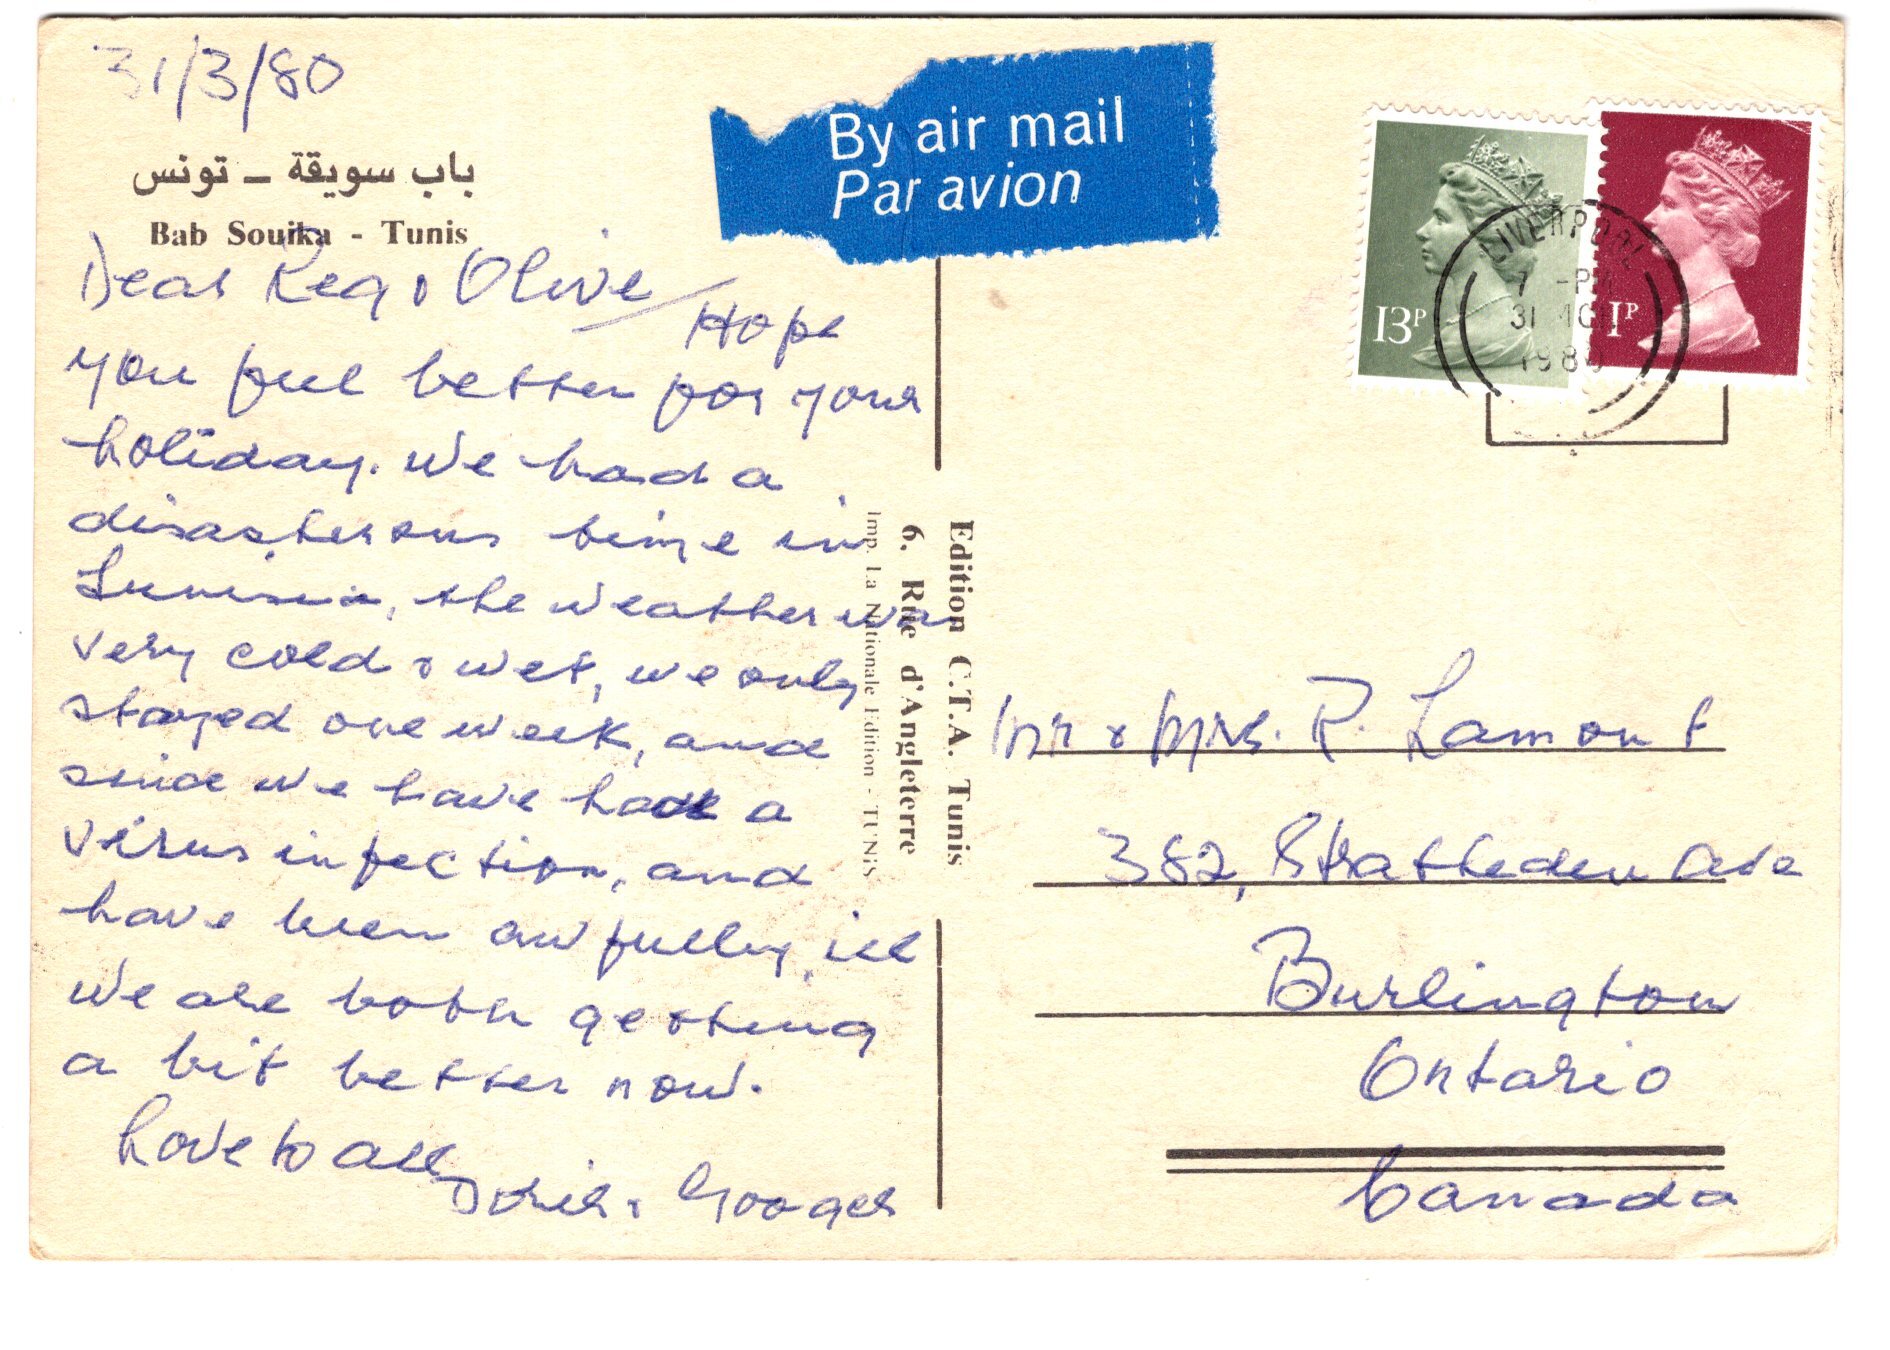 31/3/80
باب سويقة – تونس
Bab Souika - Tunis
Dear Reg & Olive
Hope
you feel better for your
holiday. We had a
disasterous time in
Tunisia, the weather was
very cold & wet, we only
stayed one week, and
since we have had a
virus infection, and
have been awfully ill
We are both getting
a bit better now.
Love to all
Doris &
By air mail
Par avion
Edition C.T.A. Tunis
6. Rue d'Angleterre
Imp. La Nationale Edition - TUNIS
13P
1P
LIVERPOOL
7 -PM
31
198
Mr & Mrs. R. Lamont
382, Stratheden Ave
Burlington
Ontario
Canada